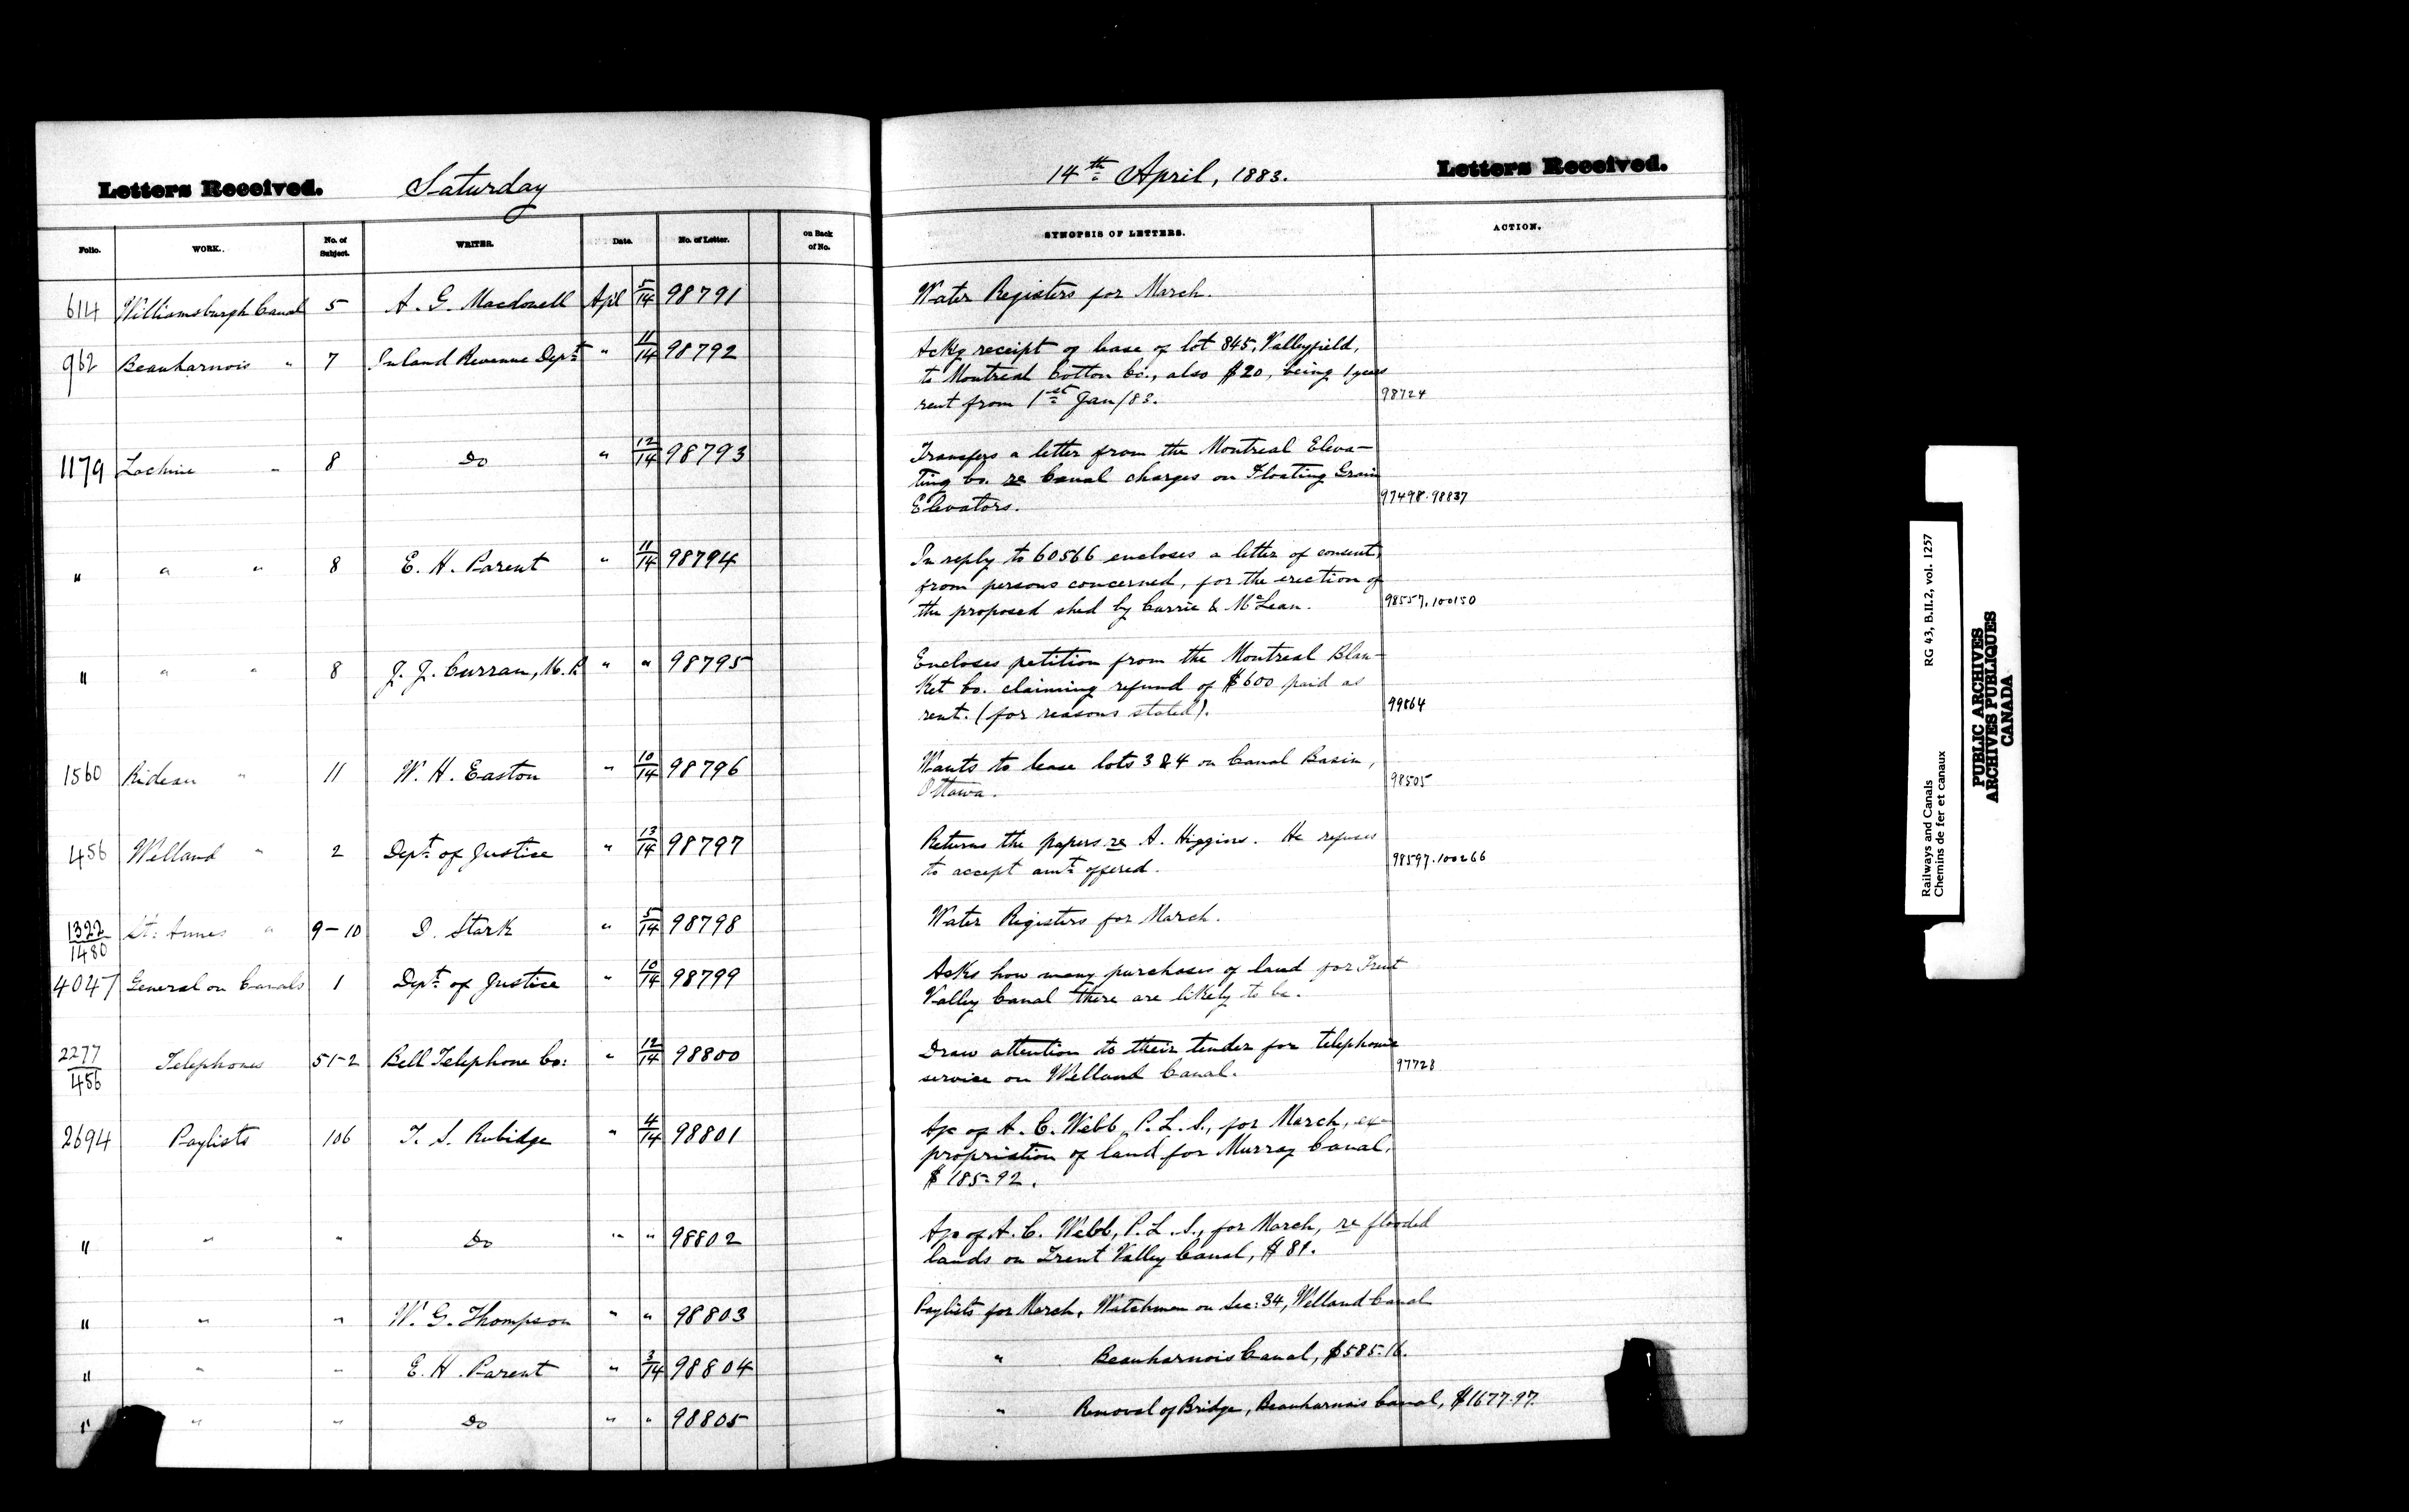 Letters Received. Saturday
14th April, 1883. Letters Received.
Folio. WORK. No. of Subject. WRITER. Date. No. of Letter. on Back of No. SYNOPSIS OF LETTERS. ACTION.
614 Williamsburgh Canal 5 A. G. Macdonell Apil 5/14 98791 Water Registers for March.
962 Beauharnois " 7 Inland Revenue Dept " 11/14 98792 Ackg receipt of lease of lot 845, Valleyfield,
to Montreal Cotton Co., also $20, being 1 years
rent from 1st Jan/83. 98724
1179 Lachine " 8 Do " 12/14 98793 Transfers a letter from the Montreal Eleva-
ting Co. re Canal charges on Floating Grain
Elevators. 97498.98837
" " " 8 E. H. Parent " 11/14 98794 In reply to 60566 encloses a letter of consent,
from persons concerned, for the erection of
the proposed shed by Currie & McLean. 98557.100150
" " " 8 J. J. Curran, M.P. " " 98795 Encloses petition from the Montreal Blan-
ket Co. claiming refund of $600 paid as
rent. (for reasons stated). 99864
1560 Rideau " 11 W. H. Easton " 10/14 98796 Wants to lease lots 3 & 4 on Canal Basin,
Ottawa. 98505
456 Welland " 2 Dept of Justice " 13/14 98797 Returns the papers re A. Higgins. He refuses
to accept amt offered. 98597.100266
1322/1480 St: Annes " 9-10 D. Stark " 5/14 98798 Water Registers for March.
4047 General on Canals 1 Dept of Justice " 10/14 98799 Asks how many purchases of land for Trent
Valley Canal there are likely to be.
2277/456 Telephones 51-2 Bell Telephone Co: " 12/14 98800 Draw attention to their tender for telephonic
service on Welland Canal. 97728
2694 Paylists 106 T. S. Rubidge " 4/14 98801 A/c of A. C. Webb, P.L.S., for March, ex-
propriation of land for Murray Canal,
$185.92.
" " " Do " " 98802 A/c of A. C. Webb, P.L.S., for March, re flooded
lands on Trent Valley Canal, $81.
" " " W. G. Thompson " " 98803 Paylists for March, Watchmen on Sec: 34, Welland Canal
" " " E. H. Parent " 3/14 98804 " Beauharnois Canal, $585.16.
" " " Do " " 98805 " Removal of Bridge, Beauharnois Canal, $1677.97.
Railways and Canals RG 43, B.II.2, vol. 1257
Chemins de fer et canaux
PUBLIC ARCHIVES
ARCHIVES PUBLIQUES
CANADA